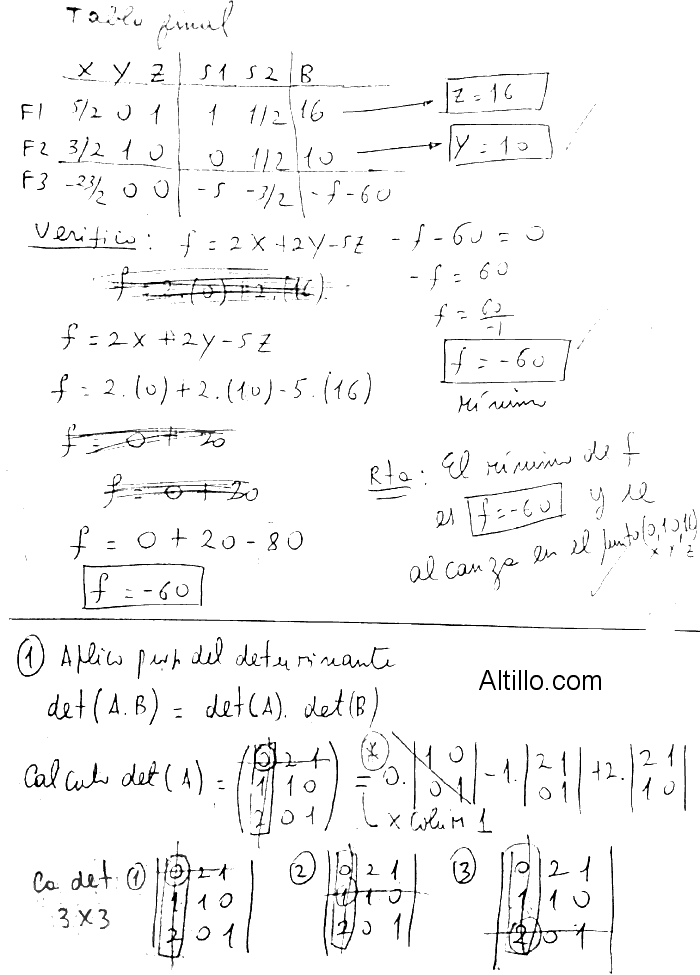 Tabla final
X Y Z | S1 S2 | B
F1 5/2 0 1 | 1 1/2 | 16 → Z = 16
F2 3/2 1 0 | 0 1/2 | 10 → Y = 10
F3 -23/2 0 0 | -5 -3/2 | -f-60
Verifico: f = 2X+2Y-5Z
-f-60 = 0
f = 2.(0)+2.(16)
-f = 60
f = 60/-1
f = 2X+2Y-5Z
f = -60
f = 2.(0)+2.(10)-5.(16)
mínimo
f = 0 + 20
f = 0 + 20
Rta: El mínimo de f
es f=-60 y se
alcanza en el punto (0,10,16)
x y z
f = 0 + 20 - 80
f = -60
① Aplico prop del determinante
Altillo.com
det(A.B) = det(A). det(B)
Calculo det(A) = (0 2 1 = * 0. |1 0| -1. |2 1| +2. |2 1|
1 1 0 0 1 0 1 1 0
2 0 1) x Colum 1
Ca det ① |0 2 1| ② |0 2 1| ③ |0 2 1|
3X3 |1 1 0| |1 1 0| |1 1 0|
|2 0 1| |2 0 1| |2 0 1|